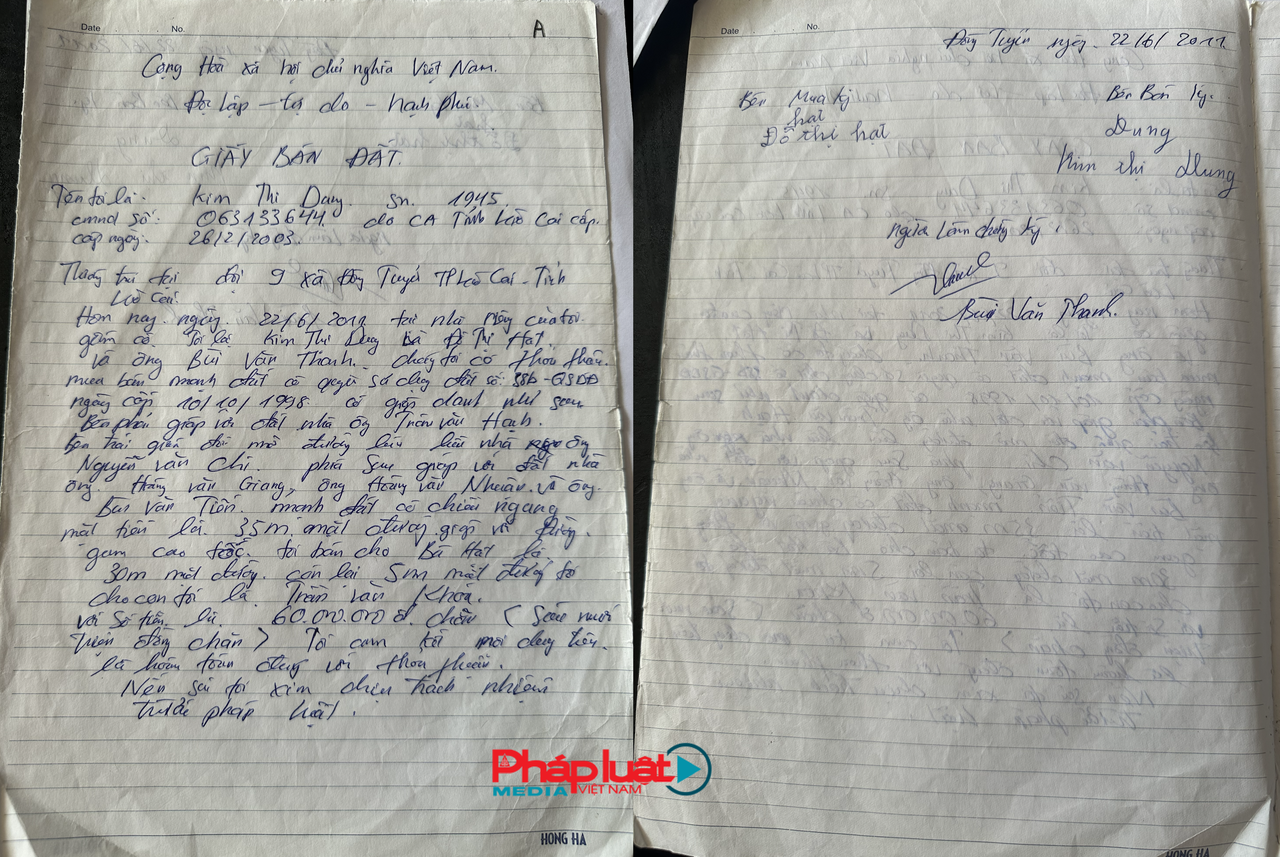 Date No. A
Cộng Hoà xã hội chủ nghĩa Việt Nam.
Độc lập - tự do - hạnh phúc.
GIẤY BÁN ĐẤT.
Tên tôi là: Kim Thị Dung. sn. 1945.
cmnd số: 063133644. do CA Tỉnh Lào Cai cấp.
cấp ngày: 26/2/2003.
Thường trú tại đội 9 xã Đồng Tuyển TP Lào Cai - Tỉnh
Lào Cai.
Hôm nay. ngày. 22/6/2011 tại nhà riêng của tôi.
gồm có. Tôi là Kim Thị Dung bà Đỗ Thị Hạt.
và ông Bùi Văn Thanh. chúng tôi có thỏa thuận.
mua bán mảnh đất có quyền sử dụng đất số: QSDĐ
ngày cấp 10/10/1998 có giáp danh như sau
Bên phải giáp với đất nhà ông Trần Văn Hanh.
bên trái giáp đồi mở đường nhà ông
Nguyễn Văn Chi. phía sau giáp với đất nhà
ông Hoàng Văn Giang, ông Hoàng Văn Nhuận. và ông.
Bùi Văn Tiến. mảnh đất có chiều ngang
mặt tiền là. 35m mặt đường.
gam cao tốc. tôi bán cho Bà Hạt là
30m mặt đường. còn lại 5m mặt đường tôi
cho con tôi là Trần Văn Khoa.
với số tiền là 60.000.000đ. chẵn (Sáu mươi
triệu đồng chẵn) Tôi cam kết nội dung trên.
là hoàn toàn đúng với thỏa thuận.
Nếu sai tôi xin chịu trách nhiệm
trước pháp luật.
HONG HA
Date No.
Đồng Tuyển ngày. 22/6/2011.
Bên Mua ký Bên Bán ký.
hạt Dung
Đỗ thị hạt Kim thị Dung
người làm chứng ký.
Bùi Văn Thanh.
HONG HA
Pháp luật
MEDIA VIỆT NAM